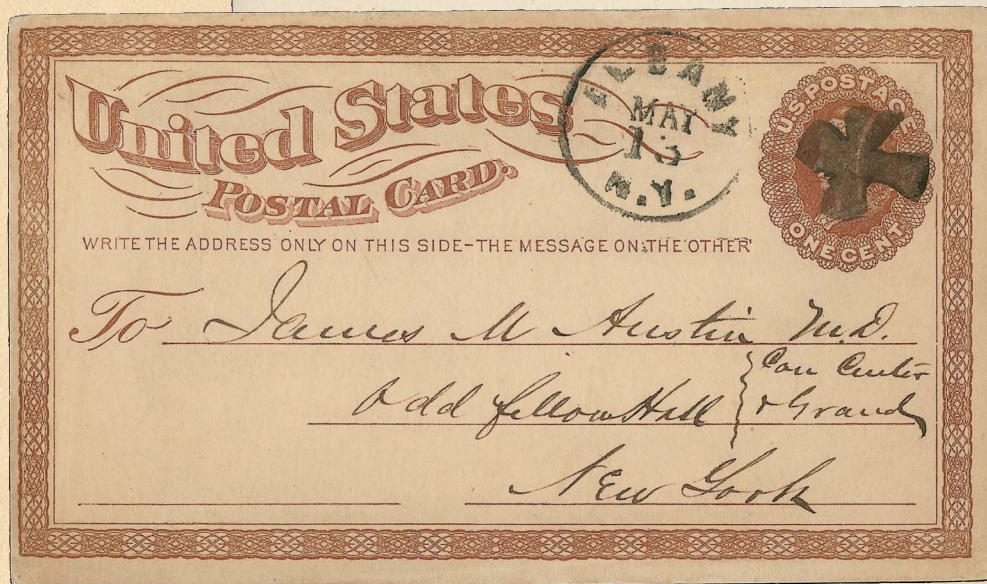 United States
POSTAL CARD.
ALBANY
MAY
13
N.Y.
U.S. POSTAGE
ONE CENT
WRITE THE ADDRESS ONLY ON THIS SIDE-THE MESSAGE ON THE OTHER
To James M Austin M.D.
Odd fellow Hall { Cor Center
& Grand
New York